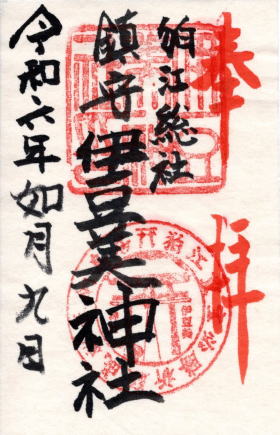 奉拝
狛江総社
鎮守伊豆美神社
令和六年如月九日